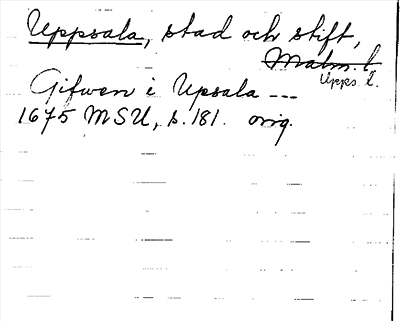 Uppsala, stad och stift,
Malm. l.
Upps l.
Gifwen i Upsala ---
1675 MSU, s. 181. orig.